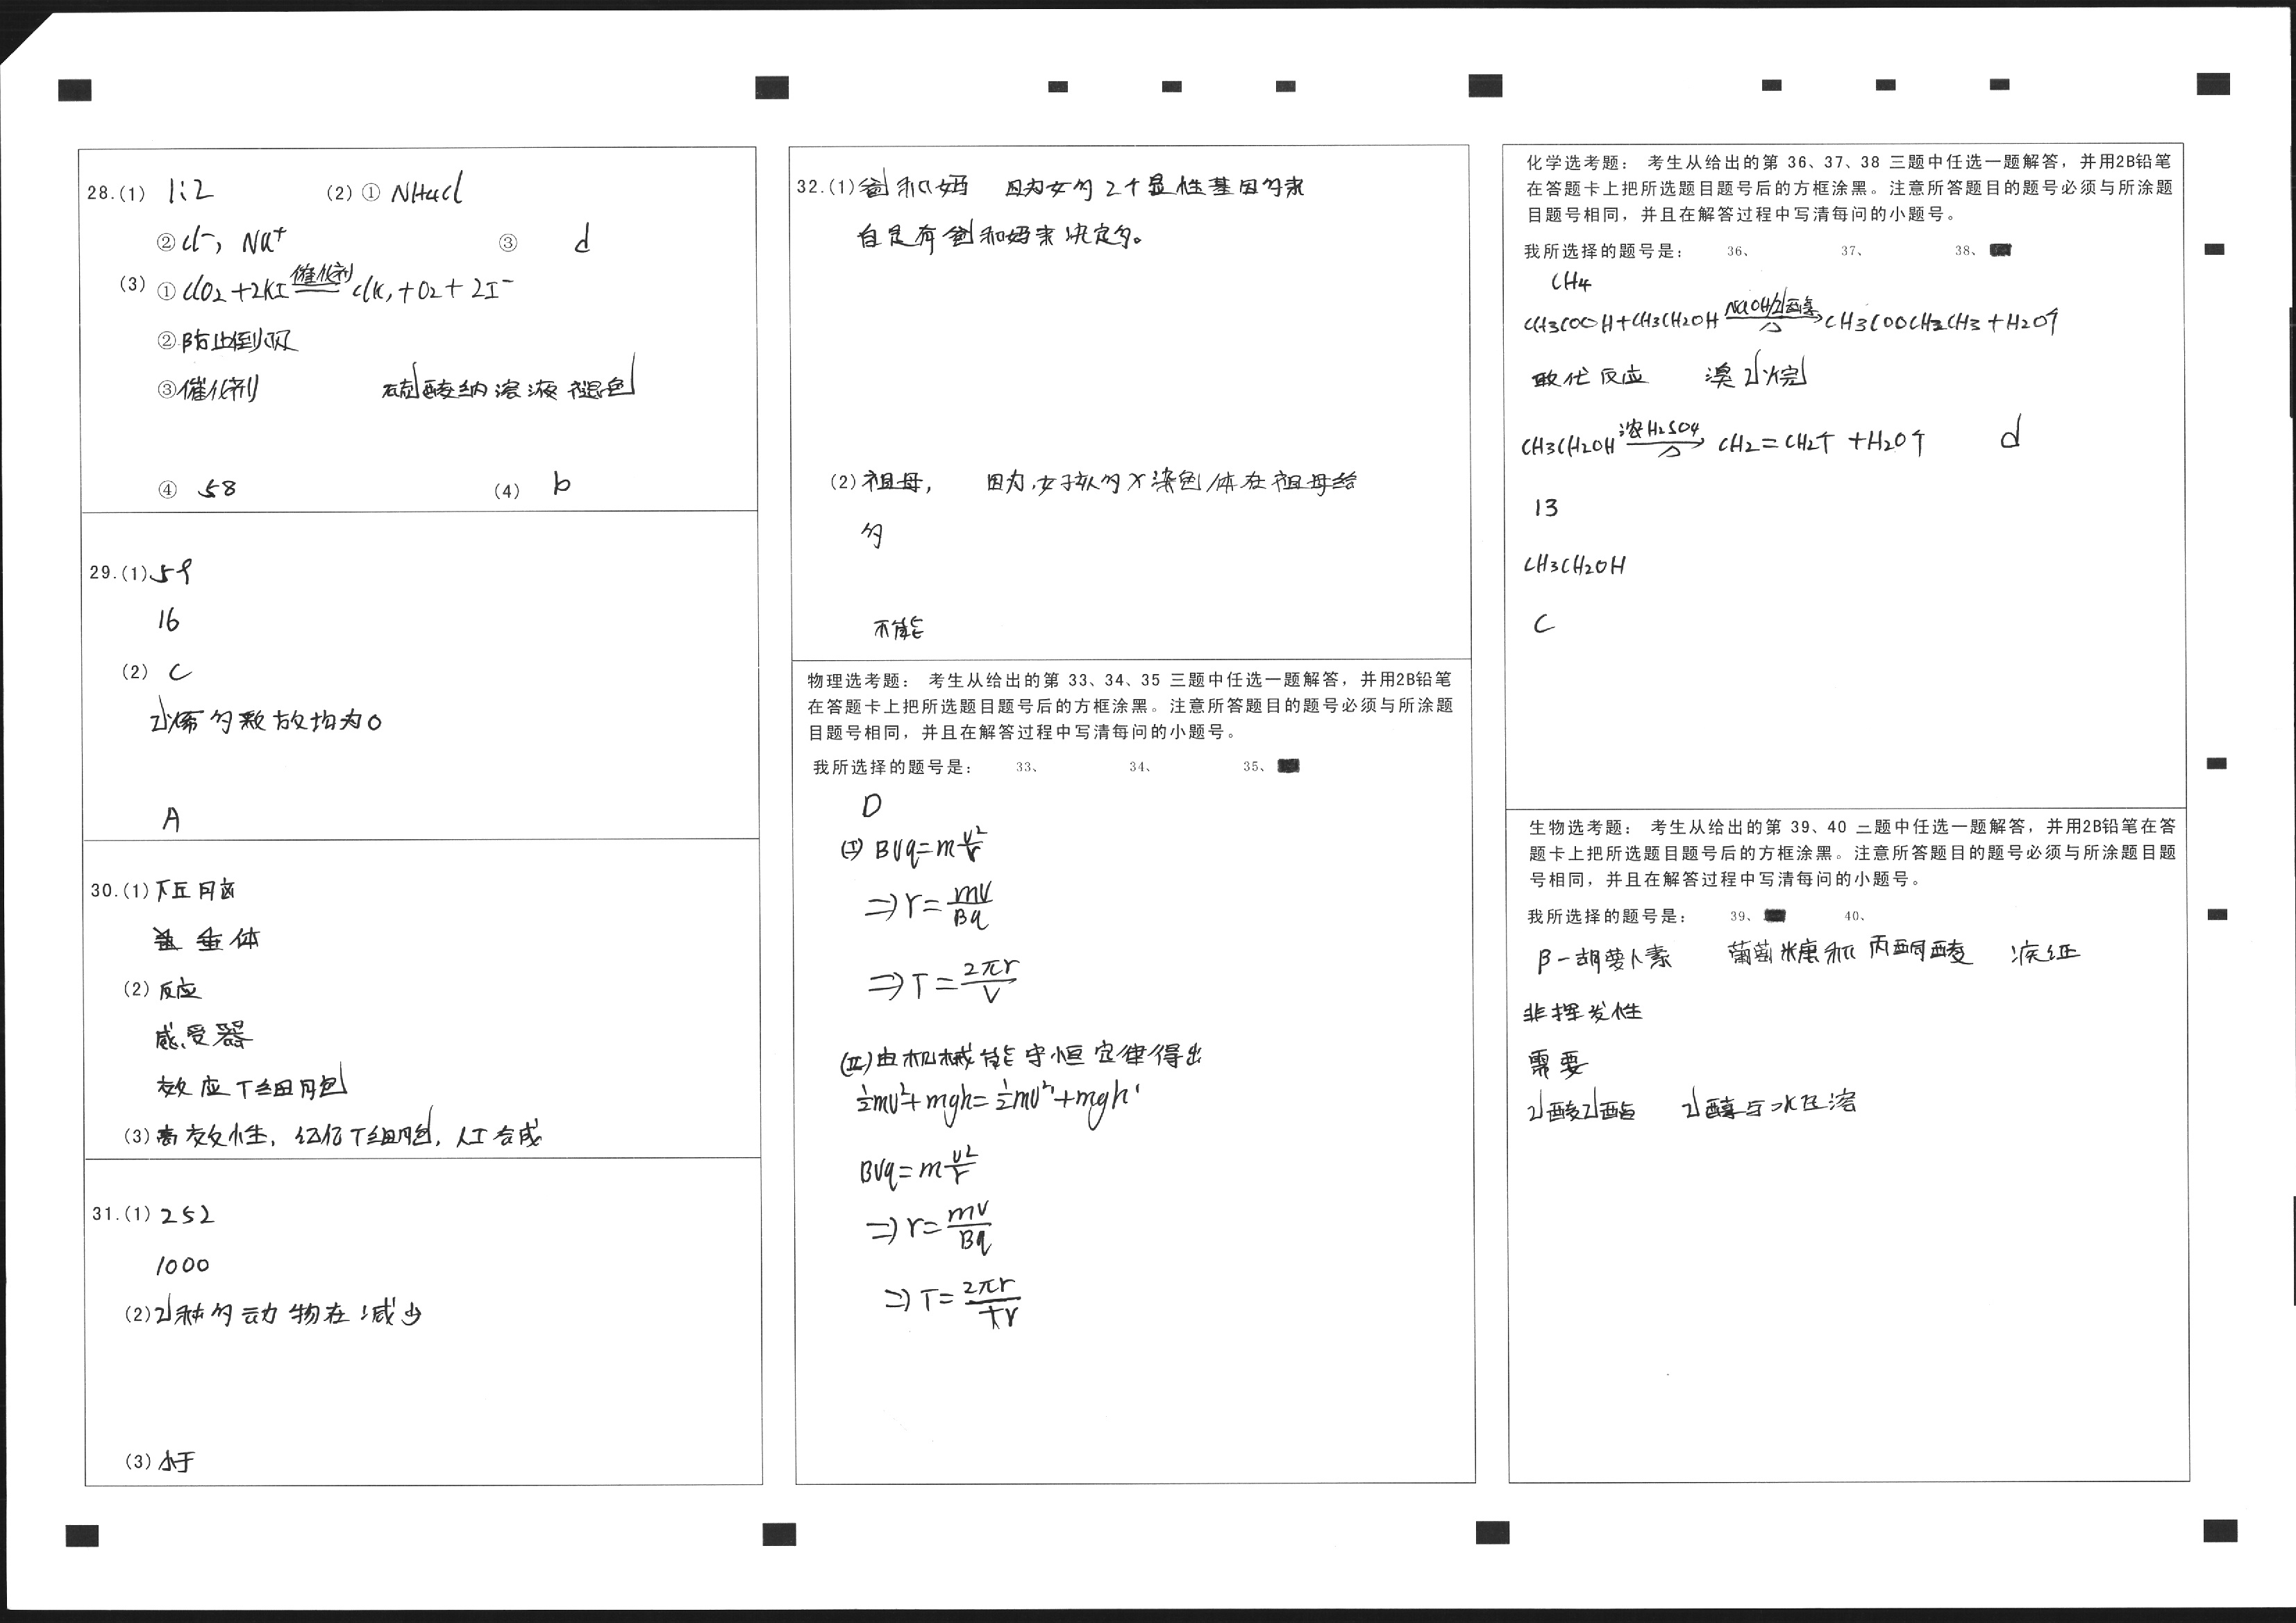 28.(1) 1:2 (2) ① NH4Cl
② Cl⁻, Na⁺ ③ d
(3) ① ClO2+2KI 催化剂 ClK,+O2+2I⁻
② 防止倒吸
③ 催化剂 硫酸纳溶液褪色
④ 58 (4) b
29.(1) 59
16
(2) C
乙烯的数放均为0
A
30.(1) 下丘月卤
垂体
(2) 反应
感受器
效应T细胞
(3) 高效性, 记忆T细胞, 人工合成
31.(1) 252
1000
(2) 乙种的动物在减少
(3) 小于
32.(1) 爸和妈 因为女的2个显性基因的来
自是有爸和妈来决定的。
(2) 祖母, 因为,女孩的X染色体在祖母给
的
不能
物理选考题: 考生从给出的第 33、34、35 三题中任选一题解答,并用2B铅笔
在答题卡上把所选题目题号后的方框涂黑。注意所答题目的题号必须与所涂题
目题号相同,并且在解答过程中写清每问的小题号。
我所选择的题号是: 33、 34、 35、
D
(I) BVq=m v²/r
⇒ r= mv/Bq
⇒ T= 2πr/V
(II) 由机械能守恒定律得出
½mv²+mgh=½mv²'+mgh'
BVq=m v²/r
⇒ r= mv/Bq
⇒ T= 2πr/
化学选考题: 考生从给出的第 36、37、38 三题中任选一题解答,并用2B铅笔
在答题卡上把所选题目题号后的方框涂黑。注意所答题目的题号必须与所涂题
目题号相同,并且在解答过程中写清每问的小题号。
我所选择的题号是: 36、 37、 38、
CH4
CH3COOH+CH3CH2OH NaOH/乙醇 △ → CH3COOCH2CH3+H2O↑
取代反应 溴乙烷
CH3CH2OH 浓H2SO4 △ → CH2=CH2↑+H2O↑ d
13
CH3CH2OH
C
生物选考题: 考生从给出的第 39、40 二题中任选一题解答,并用2B铅笔在答
题卡上把所选题目题号后的方框涂黑。注意所答题目的题号必须与所涂题目题
号相同,并且在解答过程中写清每问的小题号。
我所选择的题号是: 39、 40、
β-胡萝卜素 葡萄糖和丙酮酸
非挥发性
需要
乙酸乙酯 乙醇与水互溶